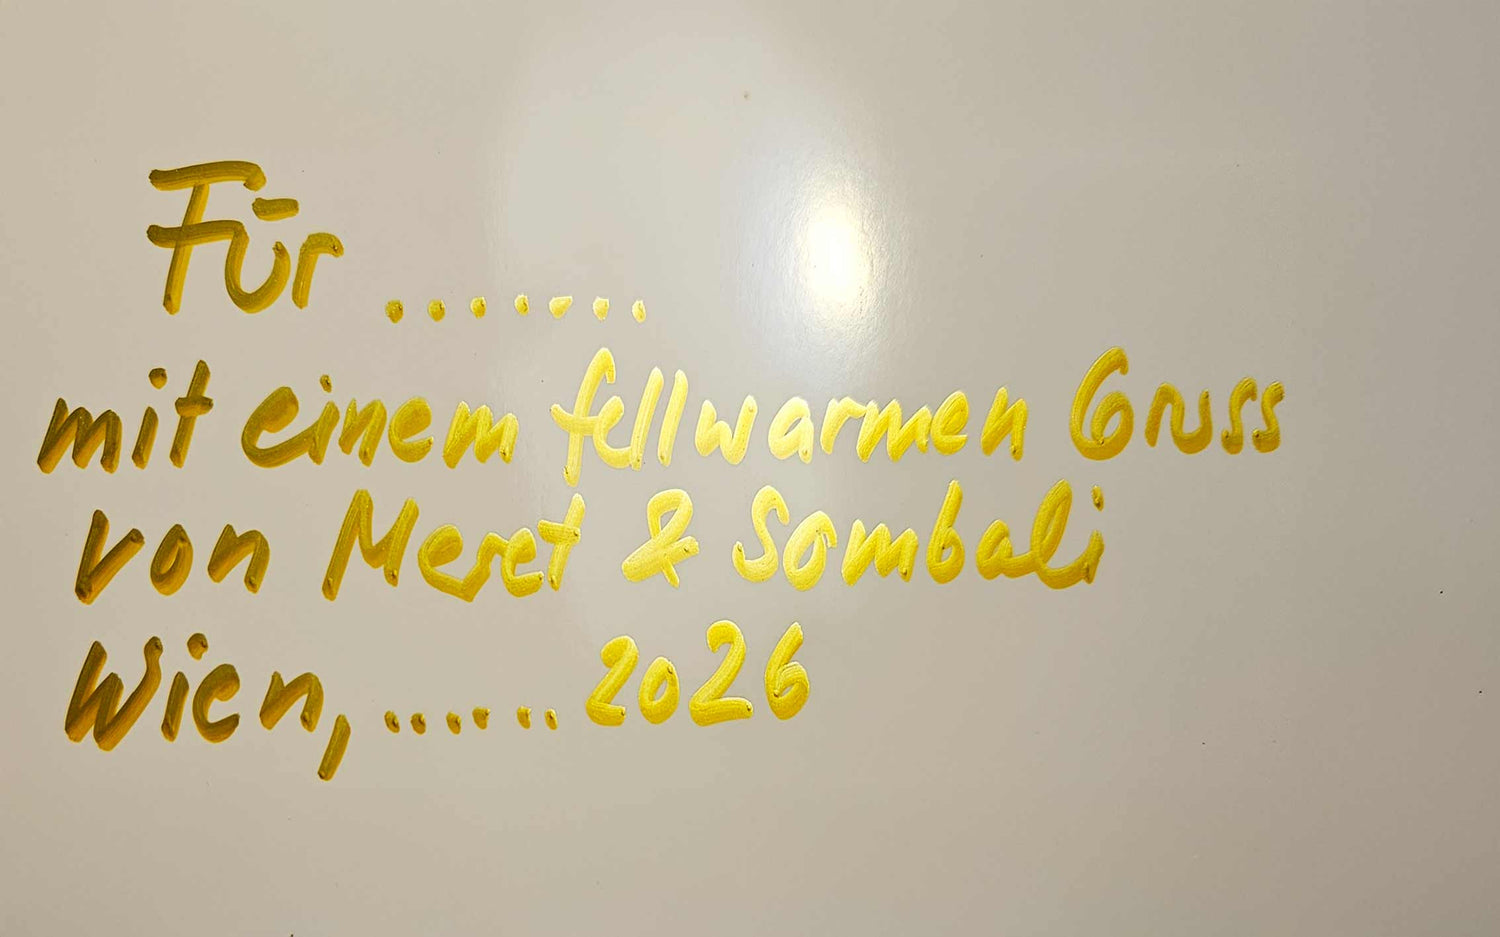 Für .......
mit einem fellwarmen Gruss
von Meret & Sombali
Wien, ...... 2026